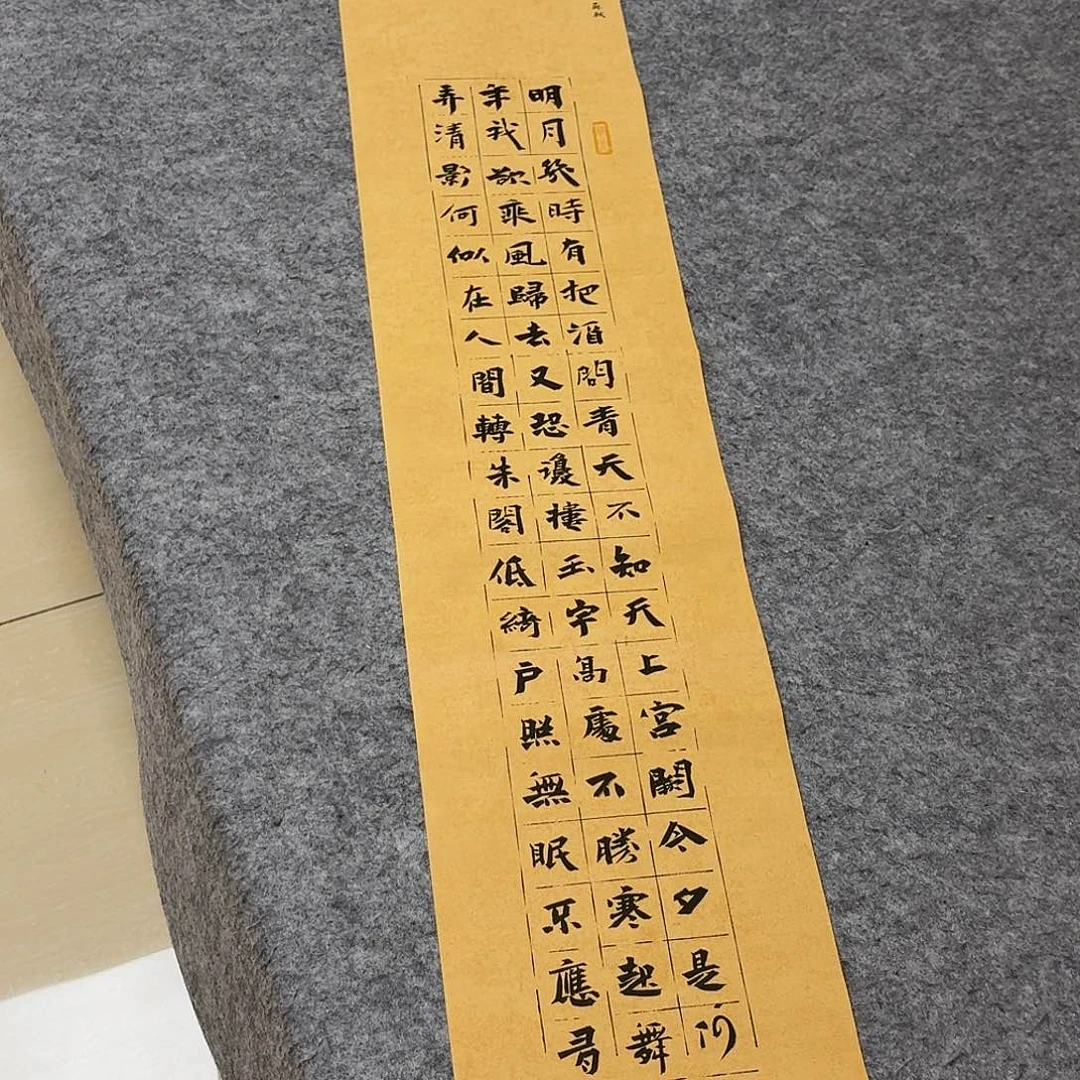 明月幾時有把酒問青天不知天上宮闕今夕是何
年我欲乘風歸去又恐瓊樓玉宇高處不勝寒起舞
弄清影何似在人間轉朱閣低綺戶照無眠不應有